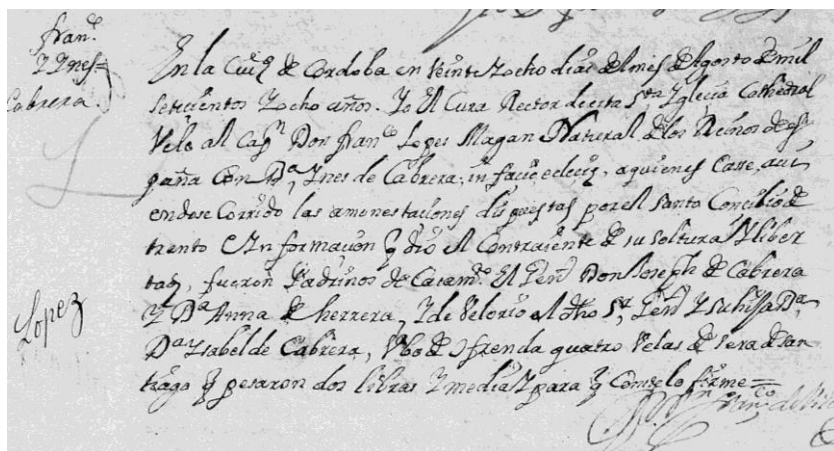 Fran.co
Y Ynes=
Cabrera.
En la Ciu.d de Cordoba en veinte Y ocho dias del mes de Agosto de mil
setecientos Y ocho años. Yo El Cura Rector de esta S.ta Yglecia Cathedral
Vele al Cap.n Don Fran.co Lopes Magan Natural de los Reinos de es
paña Con D.a Ynes de Cabrera, in facie, eclecie, aquienes Casse, avi
endose Corrido las amonestaciones dispuestas por el Santo Concilio de
trento E Ynformacion q dio el Contraiente de su soltura Y liber
tad, fueron Padrinos de Casam.to El Gen.l Don Joseph de Cabrera
Y D.a Anna de herrera, Y de Velorio el dho S.r Gen.l Y su hija D.a
D.a Ysabel de Cabrera, Vbo de Ofrenda quatro Velas de sera de san
tiago q pesaron dos libras Y media Y para q Conste lo firme=
Lopez